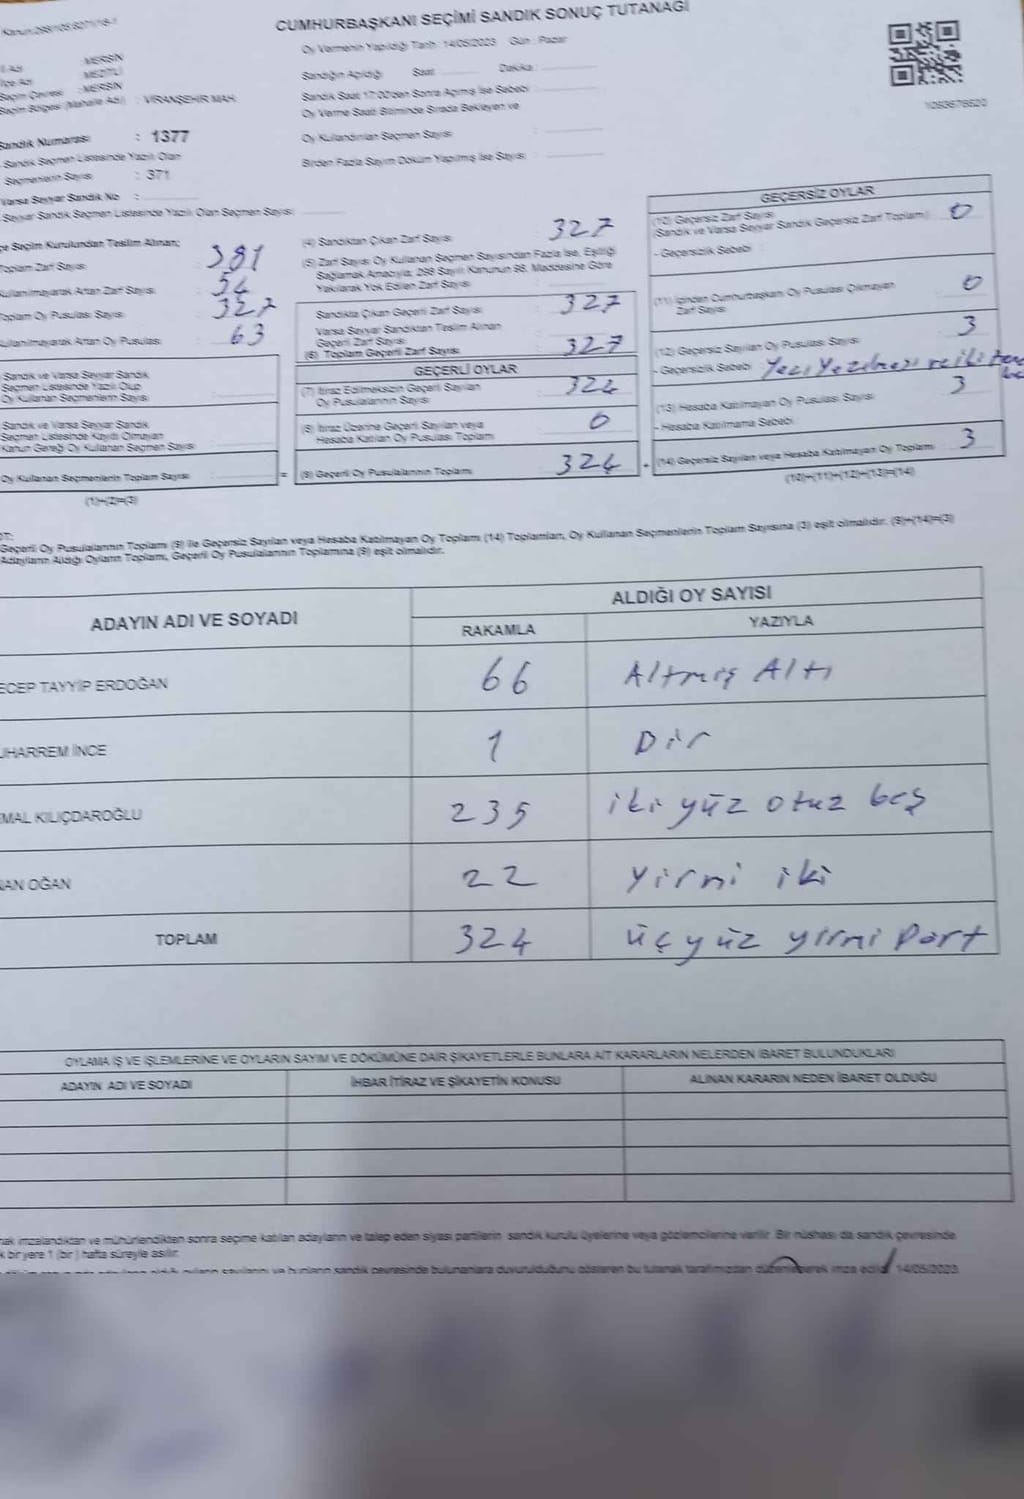 CUMHURBAŞKANI SEÇİMİ SANDIK SONUÇ TUTANAĞI
Oy Vermenin Yapıldığı Tarih : 14/05/2023 Gün : Pazar
MERSİN
MEZİTLİ
Seçim Çevresi : MERSİN
Seçim Bölgesi (Mahalle Adı) : VİRANŞEHİR MAH.
Sandık Numarası : 1377
Sandık Seçmen Listesinde Yazılı Olan
Seçmenlerin Sayısı : 371
Varsa Seyyar Sandık No :
Seyyar Sandık Seçmen Listesinde Yazılı Olan Seçmen Sayısı:
Sandığın Açıldığı Saat Dakika :
Sandık Saat 17:00'den Sonra Açılmış İse Sebebi :
Oy Verme Saati Bitiminde Sırada Bekleyen ve
Oy Kullandırılan Seçmen Sayısı :
Birden Fazla Sayım Döküm Yapılmış İse Sayısı :
1093678520
Seçim Kurulundan Teslim Alınan;
Toplam Zarf Sayısı : 381
Kullanılmayarak Artan Zarf Sayısı : 54
Toplam Oy Pusulası Sayısı : 327
Kullanılmayarak Artan Oy Pusulası : 63
Sandık ve Varsa Seyyar Sandık
Seçmen Listesinde Yazılı Olup
Oy Kullanan Seçmenlerin Sayısı :
Sandık ve Varsa Seyyar Sandık
Seçmen Listesinde Kaydı Olmayan
Kanun Gereği Oy Kullanan Seçmen Sayısı :
Oy Kullanan Seçmenlerin Toplam Sayısı :
(1)+(2)=(3)
(4) Sandıktan Çıkan Zarf Sayısı : 327
(5) Zarf Sayısı Oy Kullanan Seçmen Sayısından Fazla İse, Eşitliği
Sağlamak Amacıyla; 298 Sayılı Kanunun 98. Maddesine Göre
Yakılarak Yok Edilen Zarf Sayısı :
Sandıkta Çıkan Geçerli Zarf Sayısı : 327
Varsa Seyyar Sandıktan Teslim Alınan
Geçerli Zarf Sayısı
(6) Toplam Geçerli Zarf Sayısı : 327
GEÇERLİ OYLAR
(7) İtiraz Edilmeksizin Geçerli Sayılan
Oy Pusulalarının Sayısı : 324
(8) İtiraz Üzerine Geçerli Sayılan veya
Hesaba Katılan Oy Pusulası Toplamı : 0
= (9) Geçerli Oy Pusulalarının Toplamı : 324 +
GEÇERSİZ OYLAR
(10) Geçersiz Zarf Sayısı
(Sandık ve Varsa Seyyar Sandık Geçersiz Zarf Toplamı) : 0
- Geçersizlik Sebebi :
(11) İçinden Cumhurbaşkanı Oy Pusulası Çıkmayan
Zarf Sayısı : 0
(12) Geçersiz Sayılan Oy Pusulası Sayısı : 3
- Geçersizlik Sebebi : Yazı Yazılması ve iki
(13) Hesaba Katılmayan Oy Pusulası Sayısı : 3
- Hesaba Katılmama Sebebi :
(14) Geçersiz Sayılan veya Hesaba Katılmayan Oy Toplamı : 3
(10)+(11)+(12)+(13)=(14)
Geçerli Oy Pusulalarının Toplamı (9) ile Geçersiz Sayılan veya Hesaba Katılmayan Oy Toplamı (14) Toplamları, Oy Kullanan Seçmenlerin Toplam Sayısına (3) eşit olmalıdır. (9)+(14)=(3)
Adayların Aldığı Oyların Toplamı, Geçerli Oy Pusulalarının Toplamına (9) eşit olmalıdır.
ADAYIN ADI VE SOYADI ALDIĞI OY SAYISI
RAKAMLA YAZIYLA
ECEP TAYYİP ERDOĞAN 66 Altmış Altı
UHARREM İNCE 1 Bir
MAL KILIÇDAROĞLU 235 iki yüz otuz beş
NAN OĞAN 22 Yirmi iki
TOPLAM 324 üç yüz yirmi Dört
OYLAMA İŞ VE İŞLEMLERİNE VE OYLARIN SAYIM VE DÖKÜMÜNE DAİR ŞİKAYETLERLE BUNLARA AİT KARARLARIN NELERDEN İBARET BULUNDUKLARI
ADAYIN ADI VE SOYADI İHBAR İTİRAZ VE ŞİKAYETİN KONUSU ALINAN KARARIN NEDEN İBARET OLDUĞU
imzalandıktan ve mühürlendikten sonra seçime katılan adayların ve talep eden siyasi partilerin sandık kurulu üyelerine veya gözlemcilerine verilir. Bir nüshası da sandık çevresinde
bir yere 1 (bir) hafta süreyle asılır.
sandık çevresinde bulunanlara duyurulduğunu gösteren bu tutanak tarafımızdan düzenlenerek imza edildi. 14/05/2023